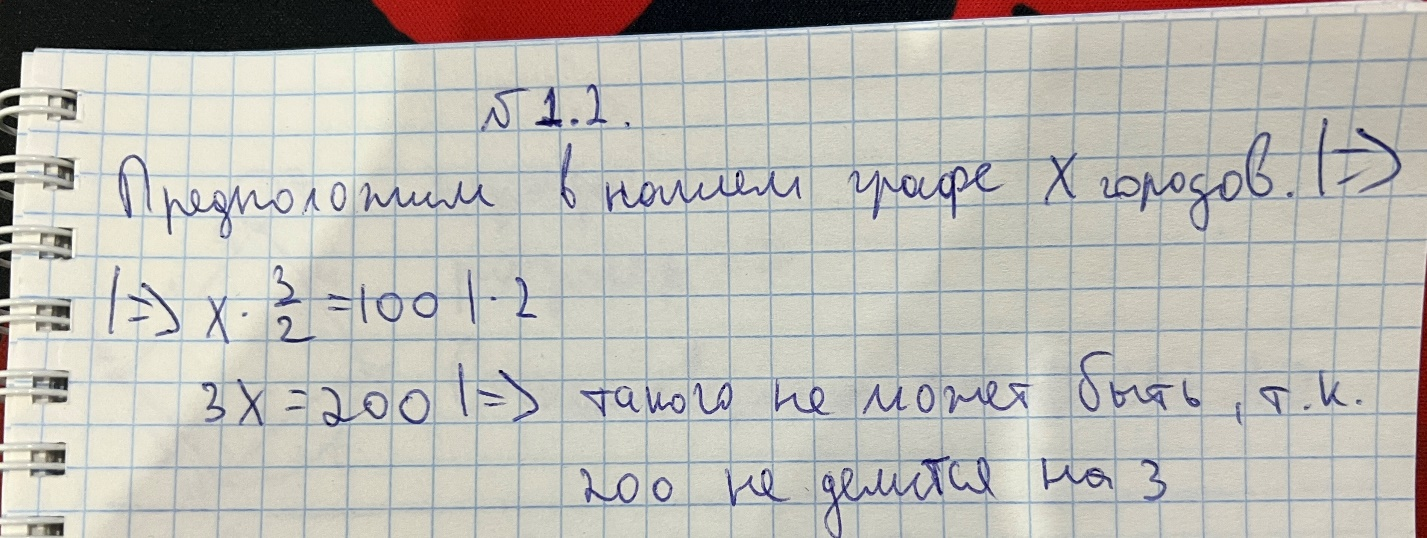 № 1.2.
Предположим в нашем графе X городов. |=>
|=> x · 3/2 = 100 | · 2
3x = 200 |=> такого не может быть, т.к.
200 не делится на 3